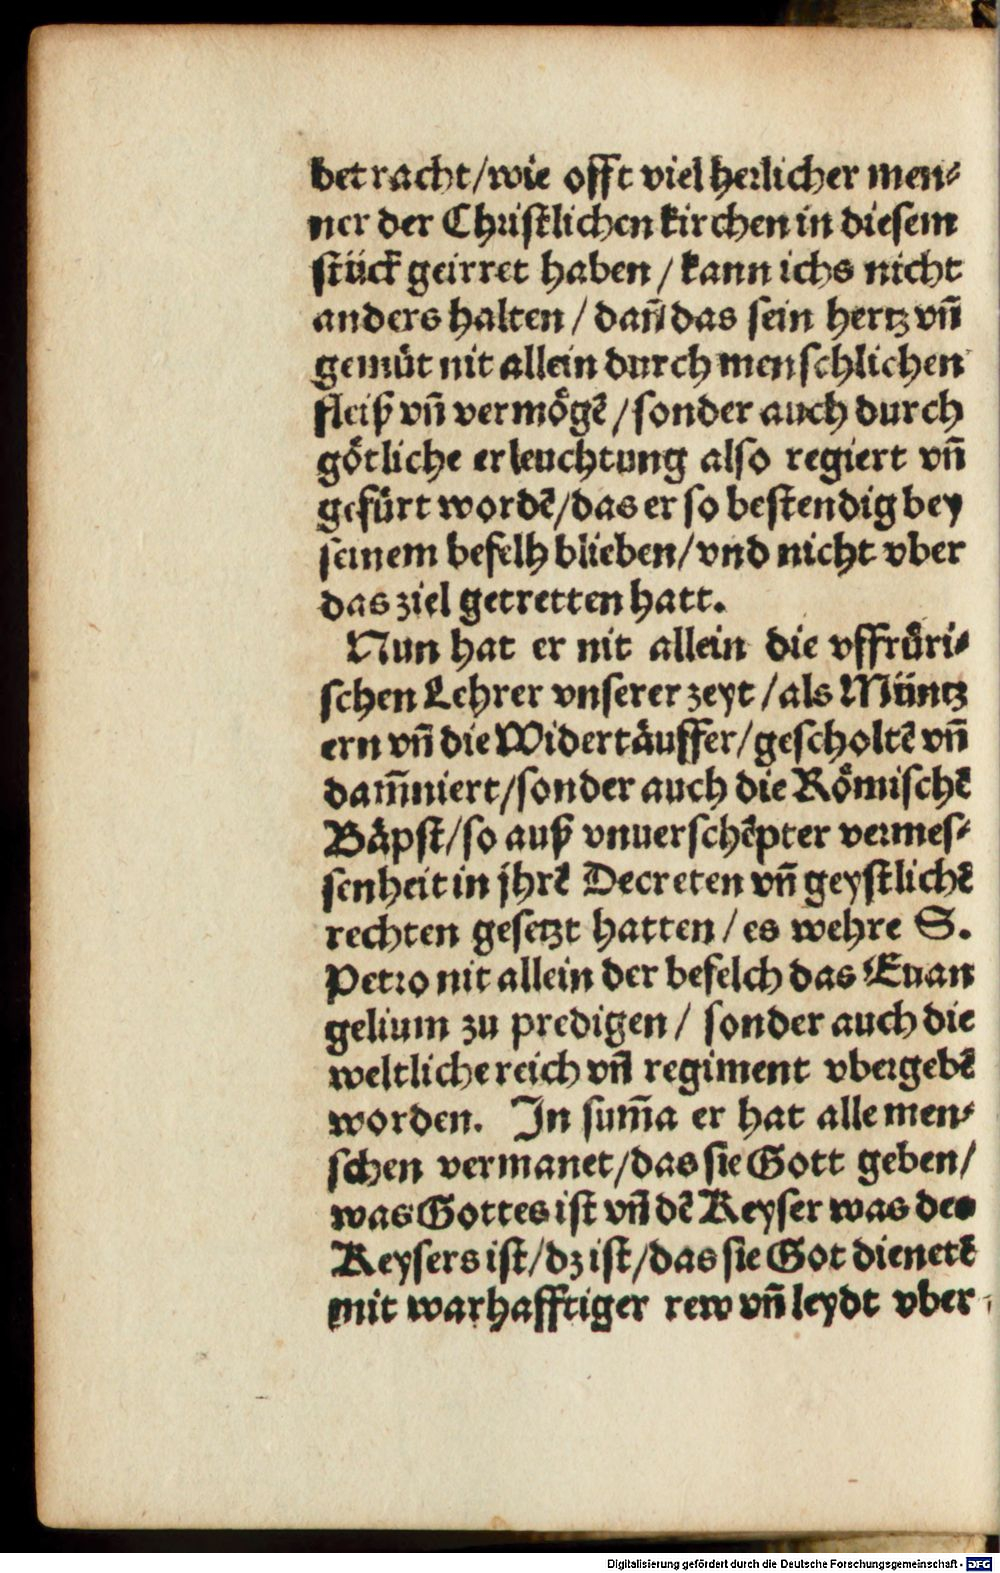 betracht/wie offt viel herlicher men⸗
ner der Christlichen kirchen in diesem
stück geirret haben / kann ichs nicht
anders halten / dañ das sein hertz vñ
gemüt nit allein durch menschlichen
fleiß vñ vermögẽ /sonder auch durch
götliche erleuchtung also regiert vñ
gefürt wordẽ/das er so bestendig bey
seinem befelh blieben/vnd nicht vber
das ziel getretten hatt.
Nun hat er nit allein die vffrüri⸗
schen Lehrer vnserer zeyt /als Müntz
ern vñ die Widertäuffer/gescholtẽ vñ
dam̃niert/sonder auch die Römischẽ
Bäpst/so auß vnuerschẽpter vermes⸗
senheit in jhrẽ Decreten vñ geystlichẽ
rechten gesetzt hatten / es wehre S.
Petro nit allein der befelch das Euan
gelium zu predigen / sonder auch die
weltliche reich vñ regiment vbergebẽ
worden. In sum̃a er hat alle men⸗
schen vermanet/das sie Gott geben/
was Gottes ist vñ dẽ Keyser was des
Keysers ist/dz ist/das sie Got dienetẽ
mit warhafftiger rew vñ leydt vber
Digitalisierung gefördert durch die Deutsche Forschungsgemeinschaft - DFG